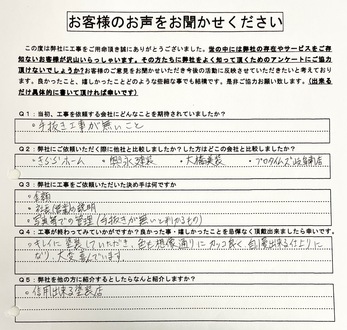 お客様のお声をお聞かせください
この度は弊社に工事をご用命頂き誠にありがとうございました。世の中には弊社の存在やサービスをご存
知ないお客様が沢山いらっしゃいます。その方たちに弊社をよく知って頂くためのアンケートにご協力
頂けないでしょうか?お客様のご意見をお聞かせいただき今後の活動に反映させていただきたいと考えており
ます。良かったこと、嬉しかったことどのような些細な事でも結構です。是非ご協力お願い致します。(出来る
だけ具体的に書いて頂ければ幸いです)
Q1:当初、工事を依頼する会社にどんなことを期待されていましたか?
・手抜き工事が無いこと
Q2:弊社にご依頼いただく際に他社と比較しましたか?した方はどこの会社と比較しましたか?
・きららホーム ・塗装 ・大橋塗装 ・プロタイムズ
Q3:弊社に工事をご依頼いただいた決め手は何ですか
・金額
・お店(営業)の説明
・写真等での管理(手抜きが無いとわかるもの)
Q4:工事が終わってみていかがですか?良かった事・嬉しかったことを忌憚なく頂戴出来ましたら幸いです。
・キレイに塗装していただき、色も想像通りにカッコ良く自慢出来る仕上りに
なり、大変喜んでいます
Q5:弊社を他の方に紹介するとしたらなんと紹介しますか?
・信用出来る塗装店